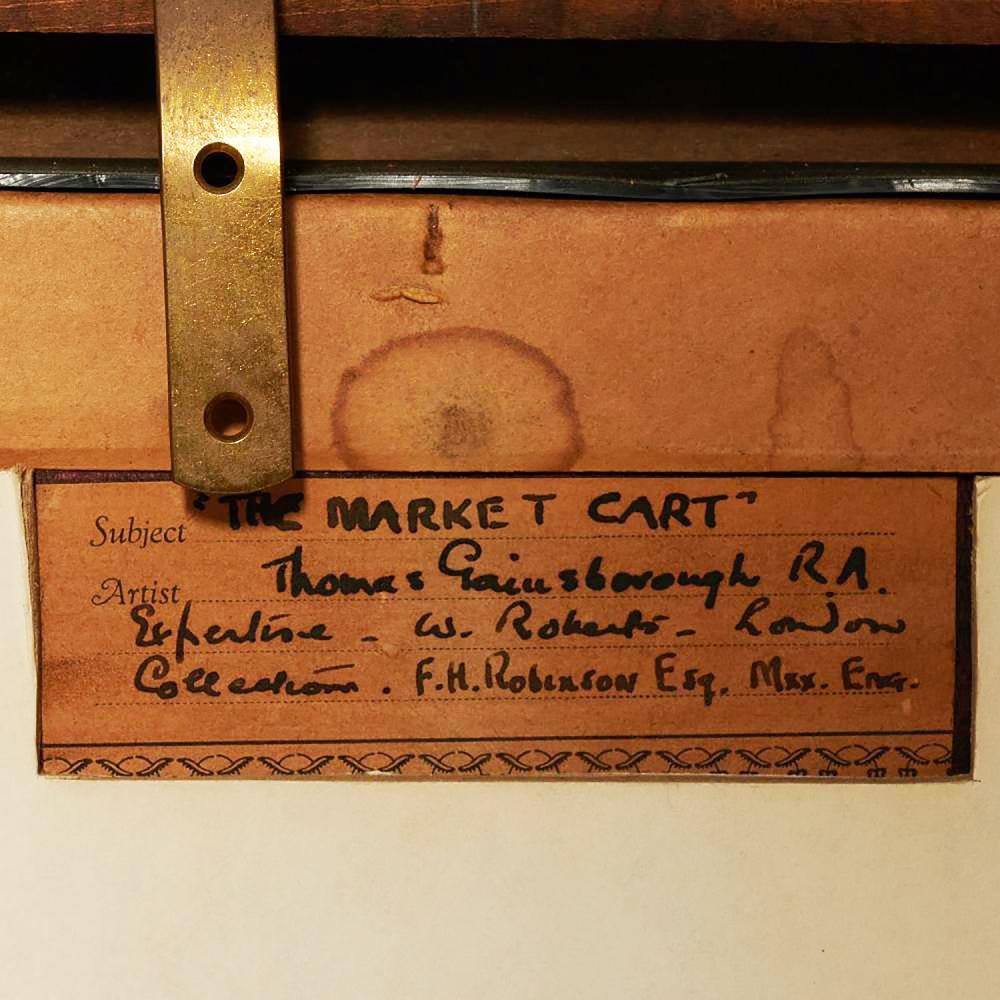 Subject "THE MARKET CART"
Artist Thomas Gainsborough R.A.
Expertise - W. Roberts - London
Collection. F.H. Robinson Esq. Mxx. Eng.